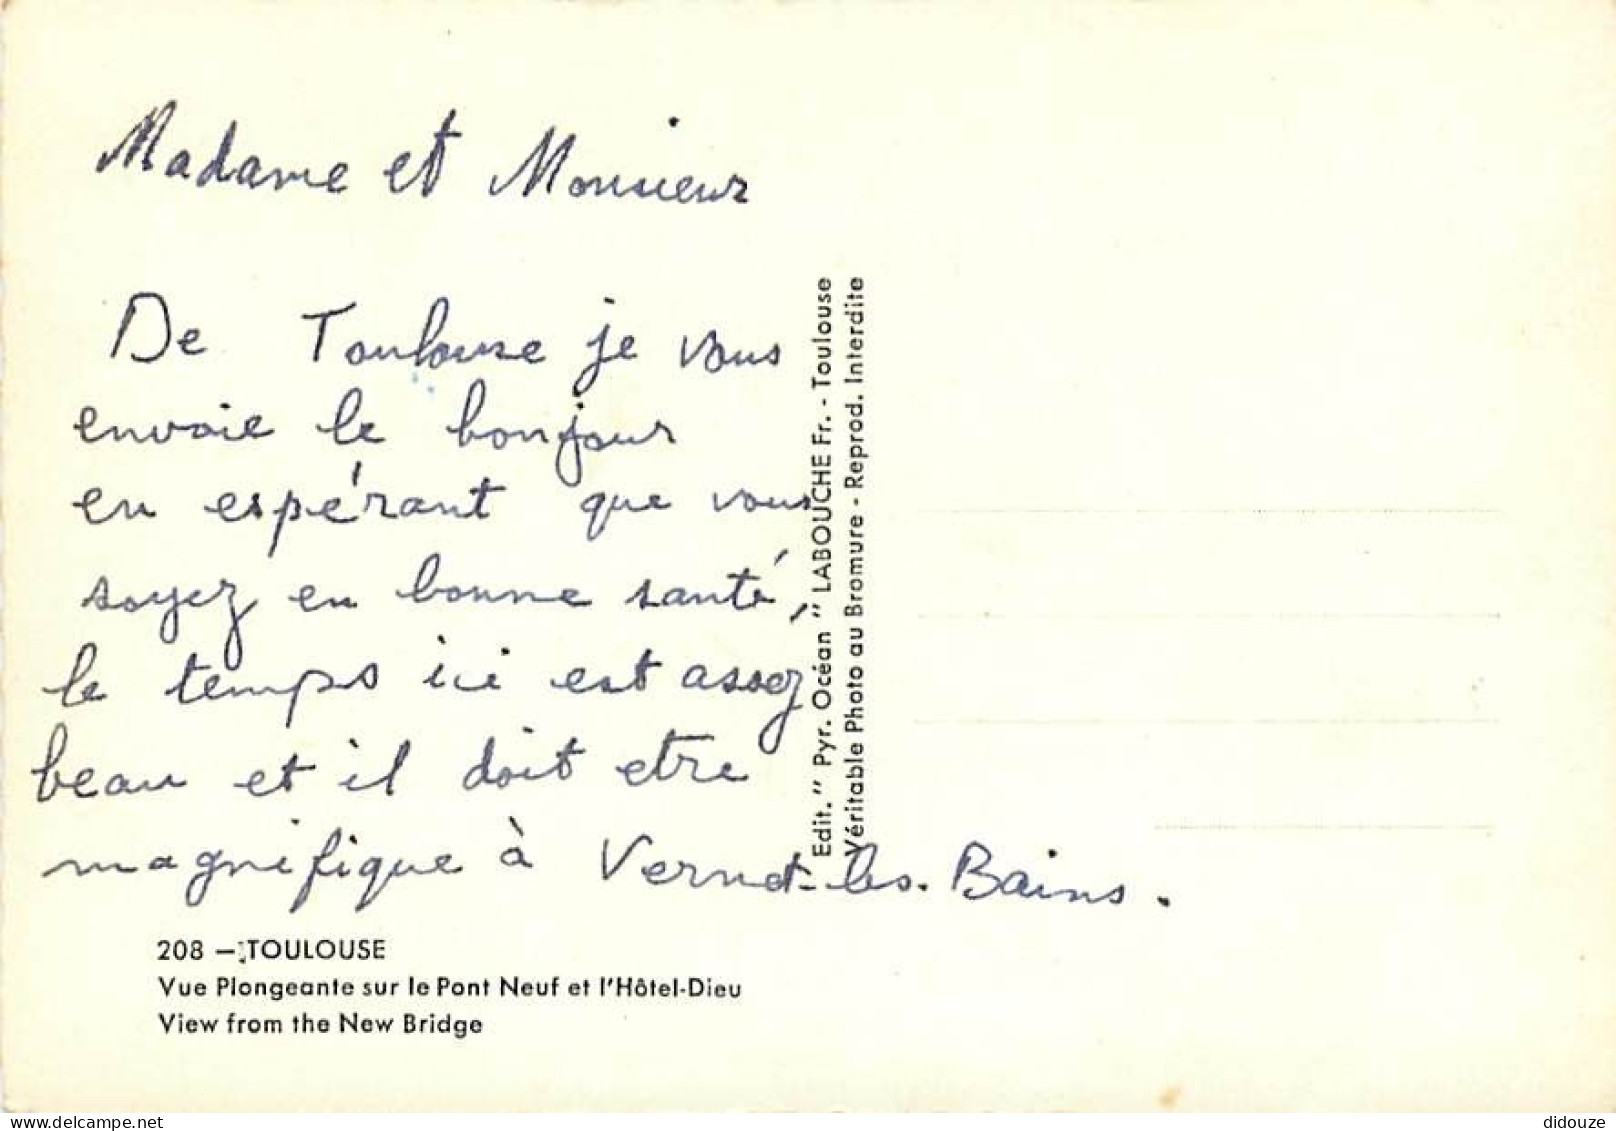 Madame et Monsieur
De Toulouse je vous
envoie le bonjour
en espérant que vous
soyez en bonne santé,
le temps ici est assez
beau et il doit etre
magnifique à Vernet-les-Bains.
208 – TOULOUSE
Vue Plongeante sur le Pont Neuf et l'Hôtel-Dieu
View from the New Bridge
Edit. " Pyr. Océan " LABOUCHE Fr. - Toulouse
Véritable Photo au Bromure - Reprod. Interdite
didouze